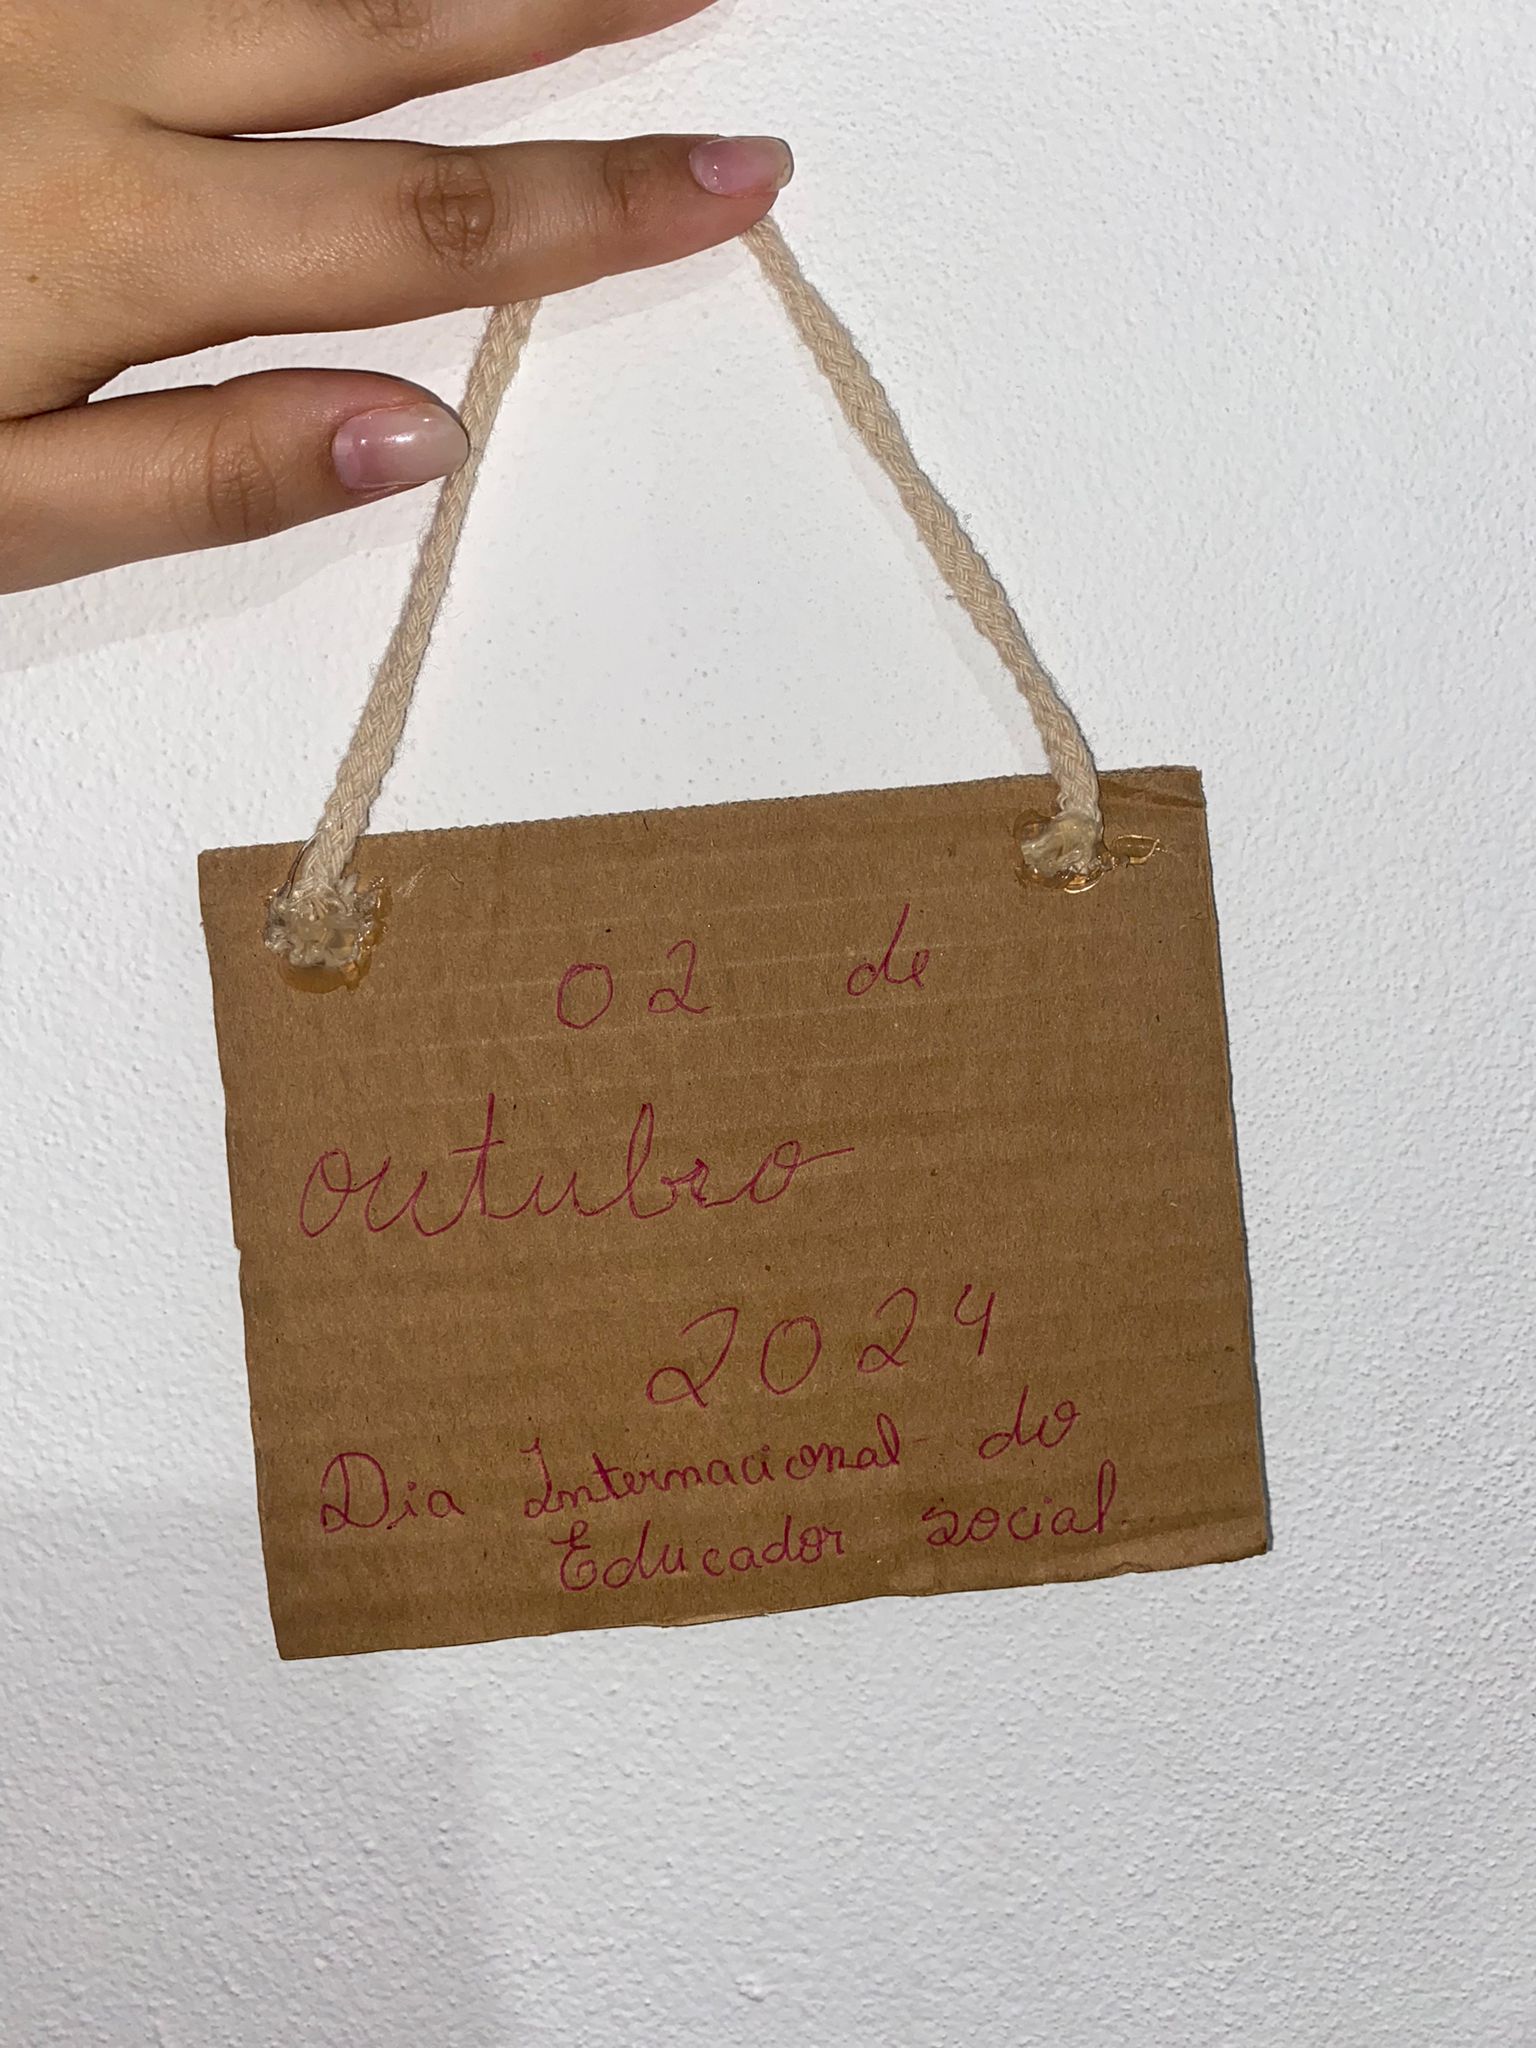 02 de
outubro
2024
Dia Internacional do
Educador social